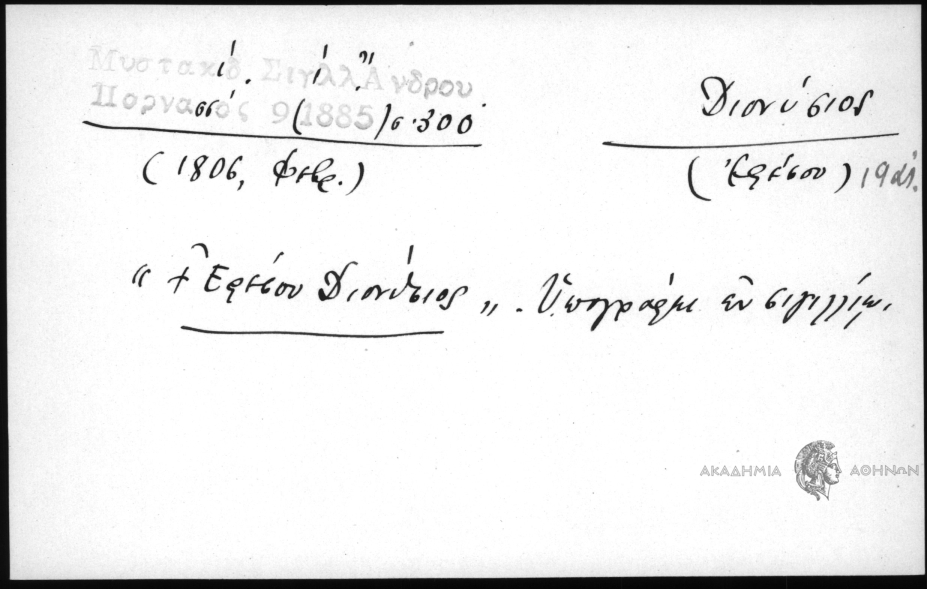 Μυστακίδ. ΣιγλλΆνδρου
Παρνασσός 9 (1885) σ. 300
(1806, Φεβρ.)
Διονύσιος
(Ἐφέσου) 19 αἰ.
" † Ἐφέσου Διονύσιος ". Ὑπογράφει ἐν σιγιλλίῳ.
ΑΚΑΔΗΜΙΑ ΑΘΗΝΩΝ